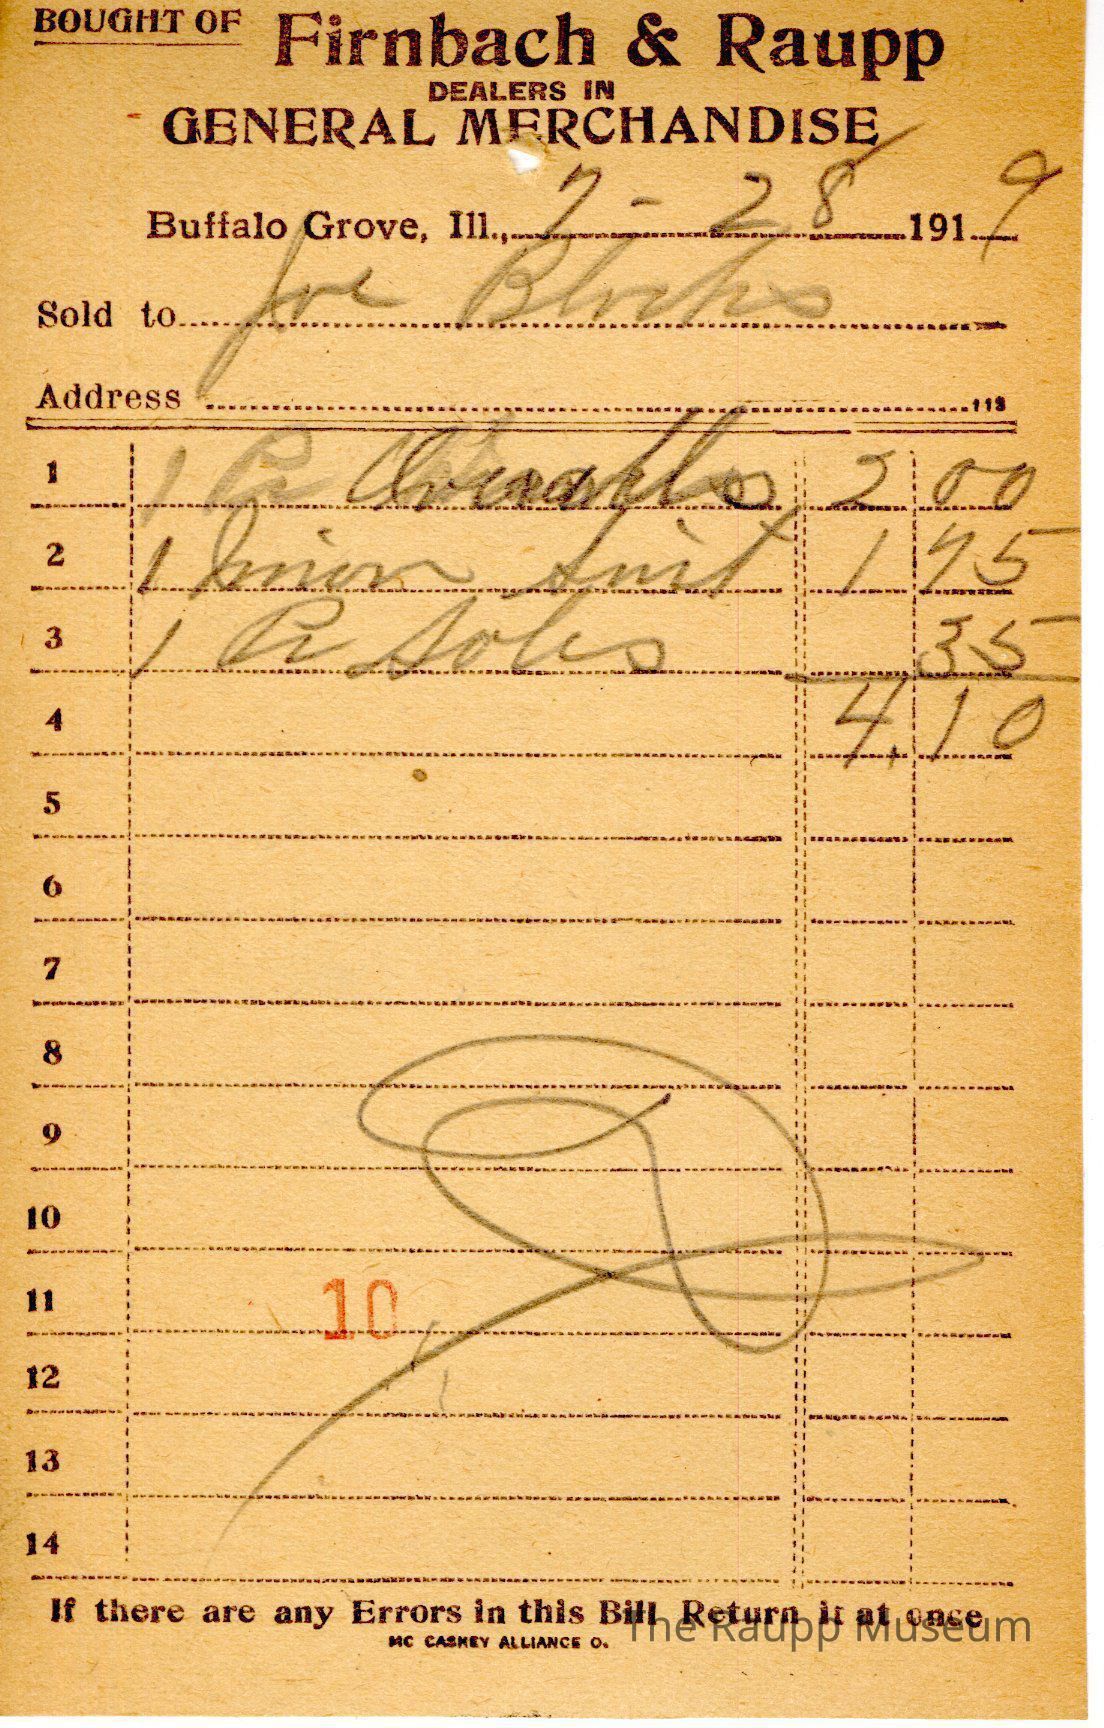 BOUGHT OF Firnbach & Raupp
DEALERS IN
GENERAL MERCHANDISE
Buffalo Grove, Ill., 7 - 28 1919
Sold to Joe
Address 113
1 1 Pr Overalls 2 00
2 1 Union Suit 1 75
3 1 Pr Soles 35
4 4.10
5
6
7
8
9
10
11 10
12
13
14
If there are any Errors in this Bill Return it at once
MC CASKEY ALLIANCE O.
The Raupp Museum